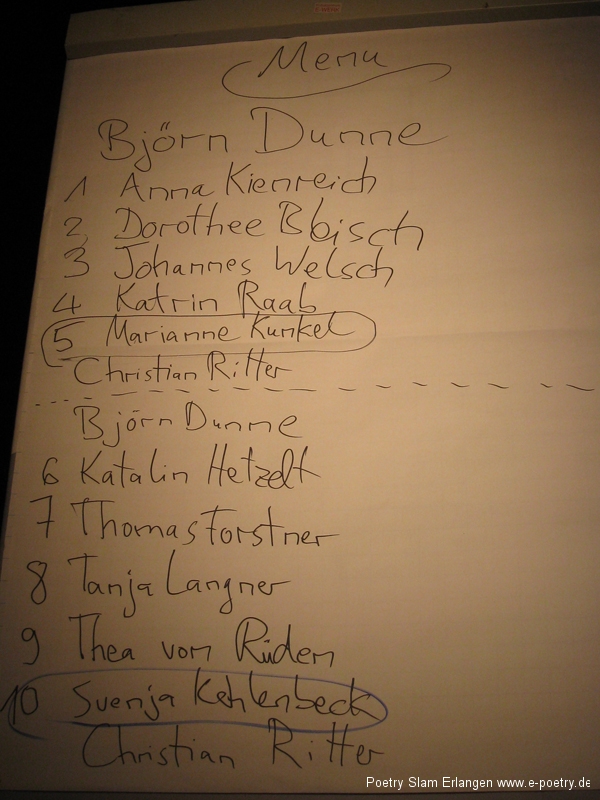 Menu
Björn Dunne
1 Anna Kienreich
2 Dorothee Bbisch
3 Johannes Welsch
4 Katrin Raab
5 Marianne Kunkel
Christian Ritter
Björn Dunne
6 Katalin Hetzelt
7 Thomas Forstner
8 Tanja Langner
9 Thea von Rüden
10 Svenja Kehlenbeck
Christian Ritter
Poetry Slam Erlangen www.e-poetry.de